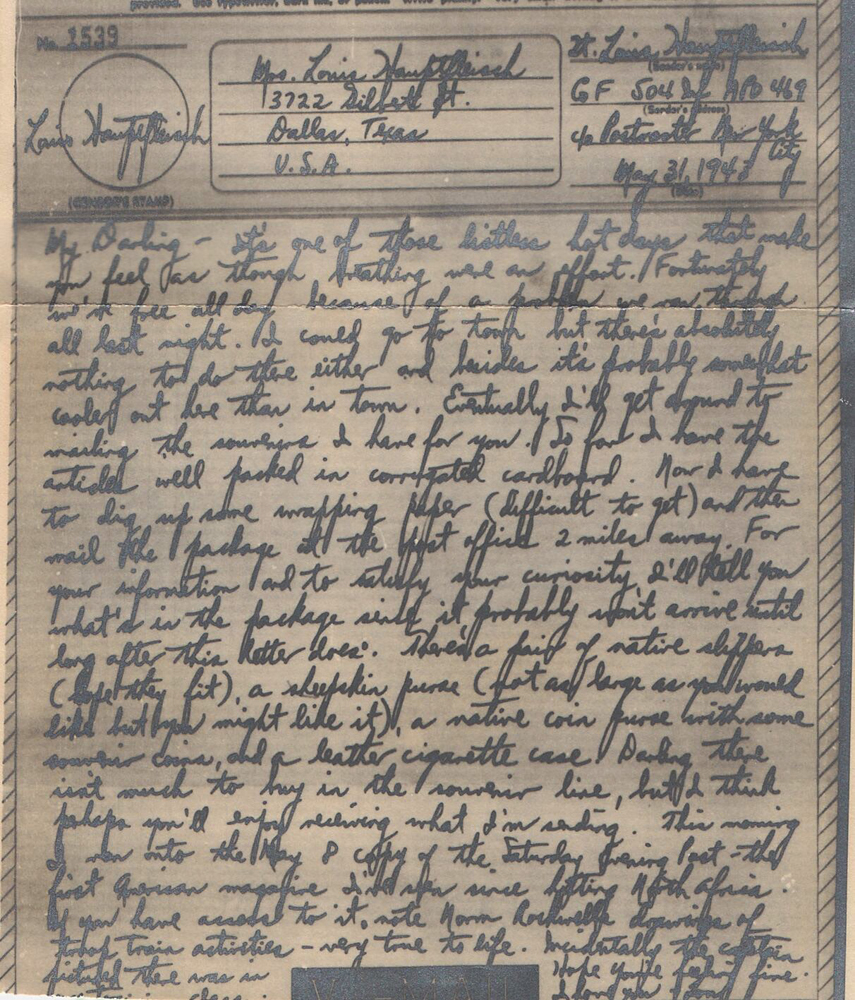 No. 1539
Louis Hauptfleisch
(CENSOR'S STAMP)
Mrs. Louis Hauptfleisch
3722 Gilbert St.
Dallas, Texas
U.S.A.
Lt. Louis Hauptfleisch
(Sender's name)
G F 504 APO 469
(Sender's address)
c/o Postmaster New York
City
May 31, 1943
(Date)
My Darling - It's one of those listless hot days that make
you feel as though breathing were an effort. Fortunately
we're free all day because of a problem we ran through
all last night. I could go to town but there's absolutely
nothing to do there either and besides it's probably somewhat
cooler out here than in town. Eventually I'll get around to
mailing the souvenirs I have for you. So far I have the
articles well packed in corrugated cardboard. Now I have
to dig up some wrapping paper (difficult to get) and then
mail the package at the post office 2 miles away. For
your information and to satisfy your curiosity I'll tell you
what's in the package since it probably won't arrive until
long after this letter does. There's a pair of native slippers
(hope they fit), a sheepskin purse (not as large as you would
like but you might like it), a native coin purse with some
souvenir coins, and a leather cigarette case. Darling there
isn't much to buy in the souvenir line, but I think
perhaps you'll enjoy receiving what I'm sending. This morning
I ran onto the May 8 copy of the Saturday Evening Post - the
first American magazine I've seen since hitting North Africa.
If you have access to it, note Norm Rockwells drawings of
troop train activities - very true to life. Incidentally the captain
pictured there was in
class.
Hope you're feeling fine.
I love you